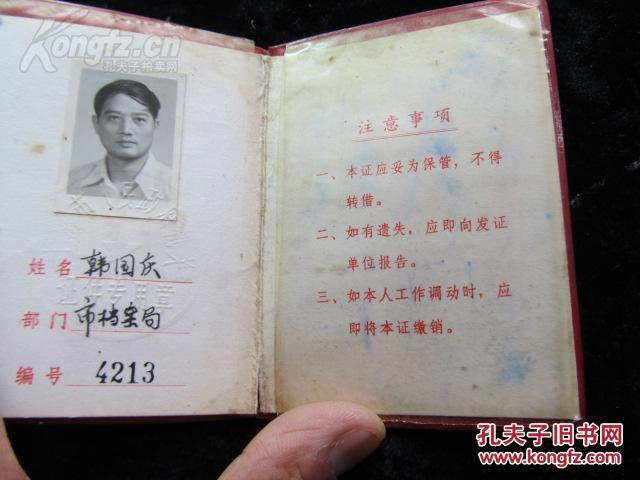 Kongfz.cn
孔夫子拍卖网
姓名 韩国庆
证件专用章
部门 市档案局
编号 4213
注意事项
一、本证应妥为保管，不得
转借。
二、如有遗失，应即向发证
单位报告。
三、如本人工作调动时，应
即将本证缴销。
孔夫子旧书网
www.kongfz.com